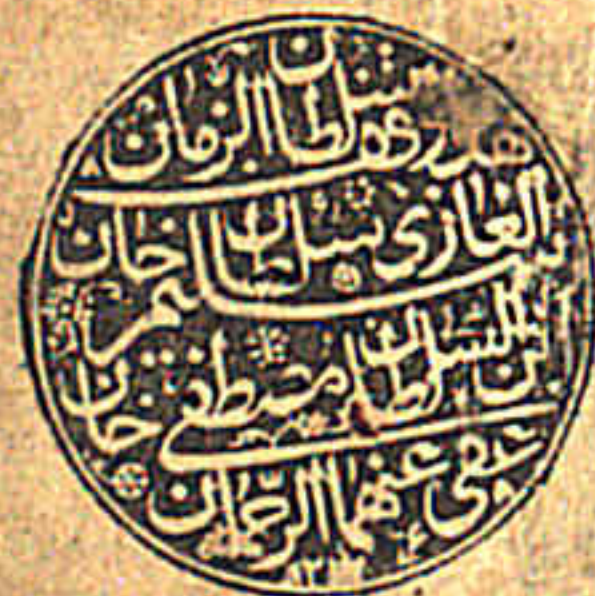 هذا وقف سلطان الزمان
الغازي سلطان سليم خان
ابن السلطان مصطفى خان
عفى عنهما الرحمان